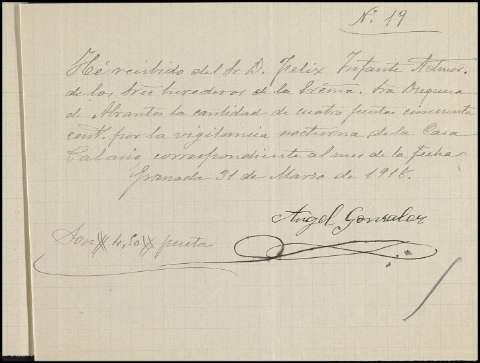 Nº 19
Hé recibido del Sr. D. Felix Infante Admor.
de los Sres herederos de la Excma. Sra Duquesa
de Abrantes la cantidad de cuatro pesetas cincuenta
cent. por la vigilancia nocturna de la Casa
correspondiente al mes de la fecha
Granada 31 de Marzo de 1916.
Angel Gonzalez
Son # 4,50 # pesetas